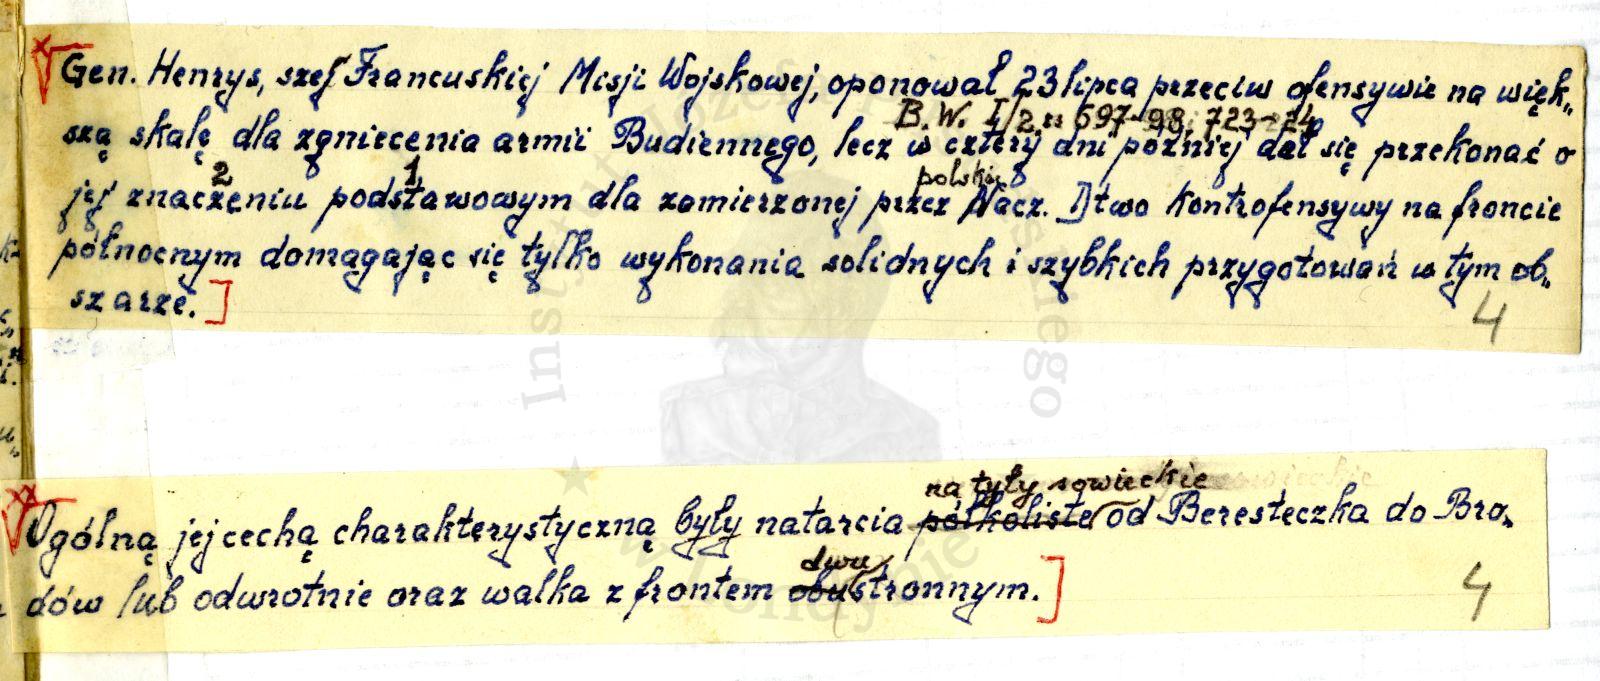 Gen. Henrys, szef Francuskiej Misji Wojskowej, oponował 23 lipca przeciw ofensywie na więk„
B.W. I/2, 697-98, 723-24
szą skalę dla zgniecenia armii Budiennego, lecz w cztery dni później dał się przekonać o
2 1 polskie
jej znaczeniu podstawowym dla zamierzonej przez Nacz. D-two kontrofensywy na froncie
północnym domagając się tylko wykonania solidnych i szybkich przygotowań w tym ob„
szarze.]
4
na tyły sowieckie
Ogólną jej cechą charakterystyczną były natarcia półkoliste od Beresteczka do Bro„
dwu
dów lub odwrotnie oraz walka z frontem obustronnym.]
4
Instytut Józefa Piłsudskiego
w Londynie